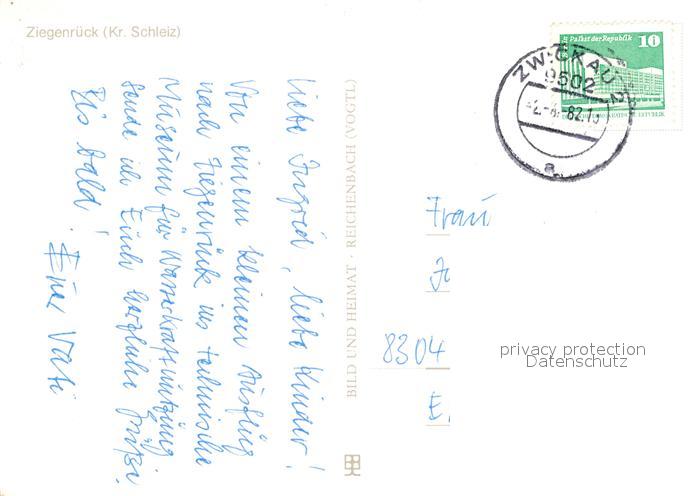 Ziegenrück (Kr. Schleiz)
Liebe Ingrid, liebe Kinder!
Von einem kleinen Ausflug
nach Ziegenrück ins technische
Museum für Wasserkraftnutzung
sende ich Euch herzliche Grüße.
Bis bald!
Euer Vati
BILD UND HEIMAT · REICHENBACH (VOGTL)
Palast der Republik 10
ZWICKAU
9502
a
Frau
8304
E.
privacy protection
Datenschutz